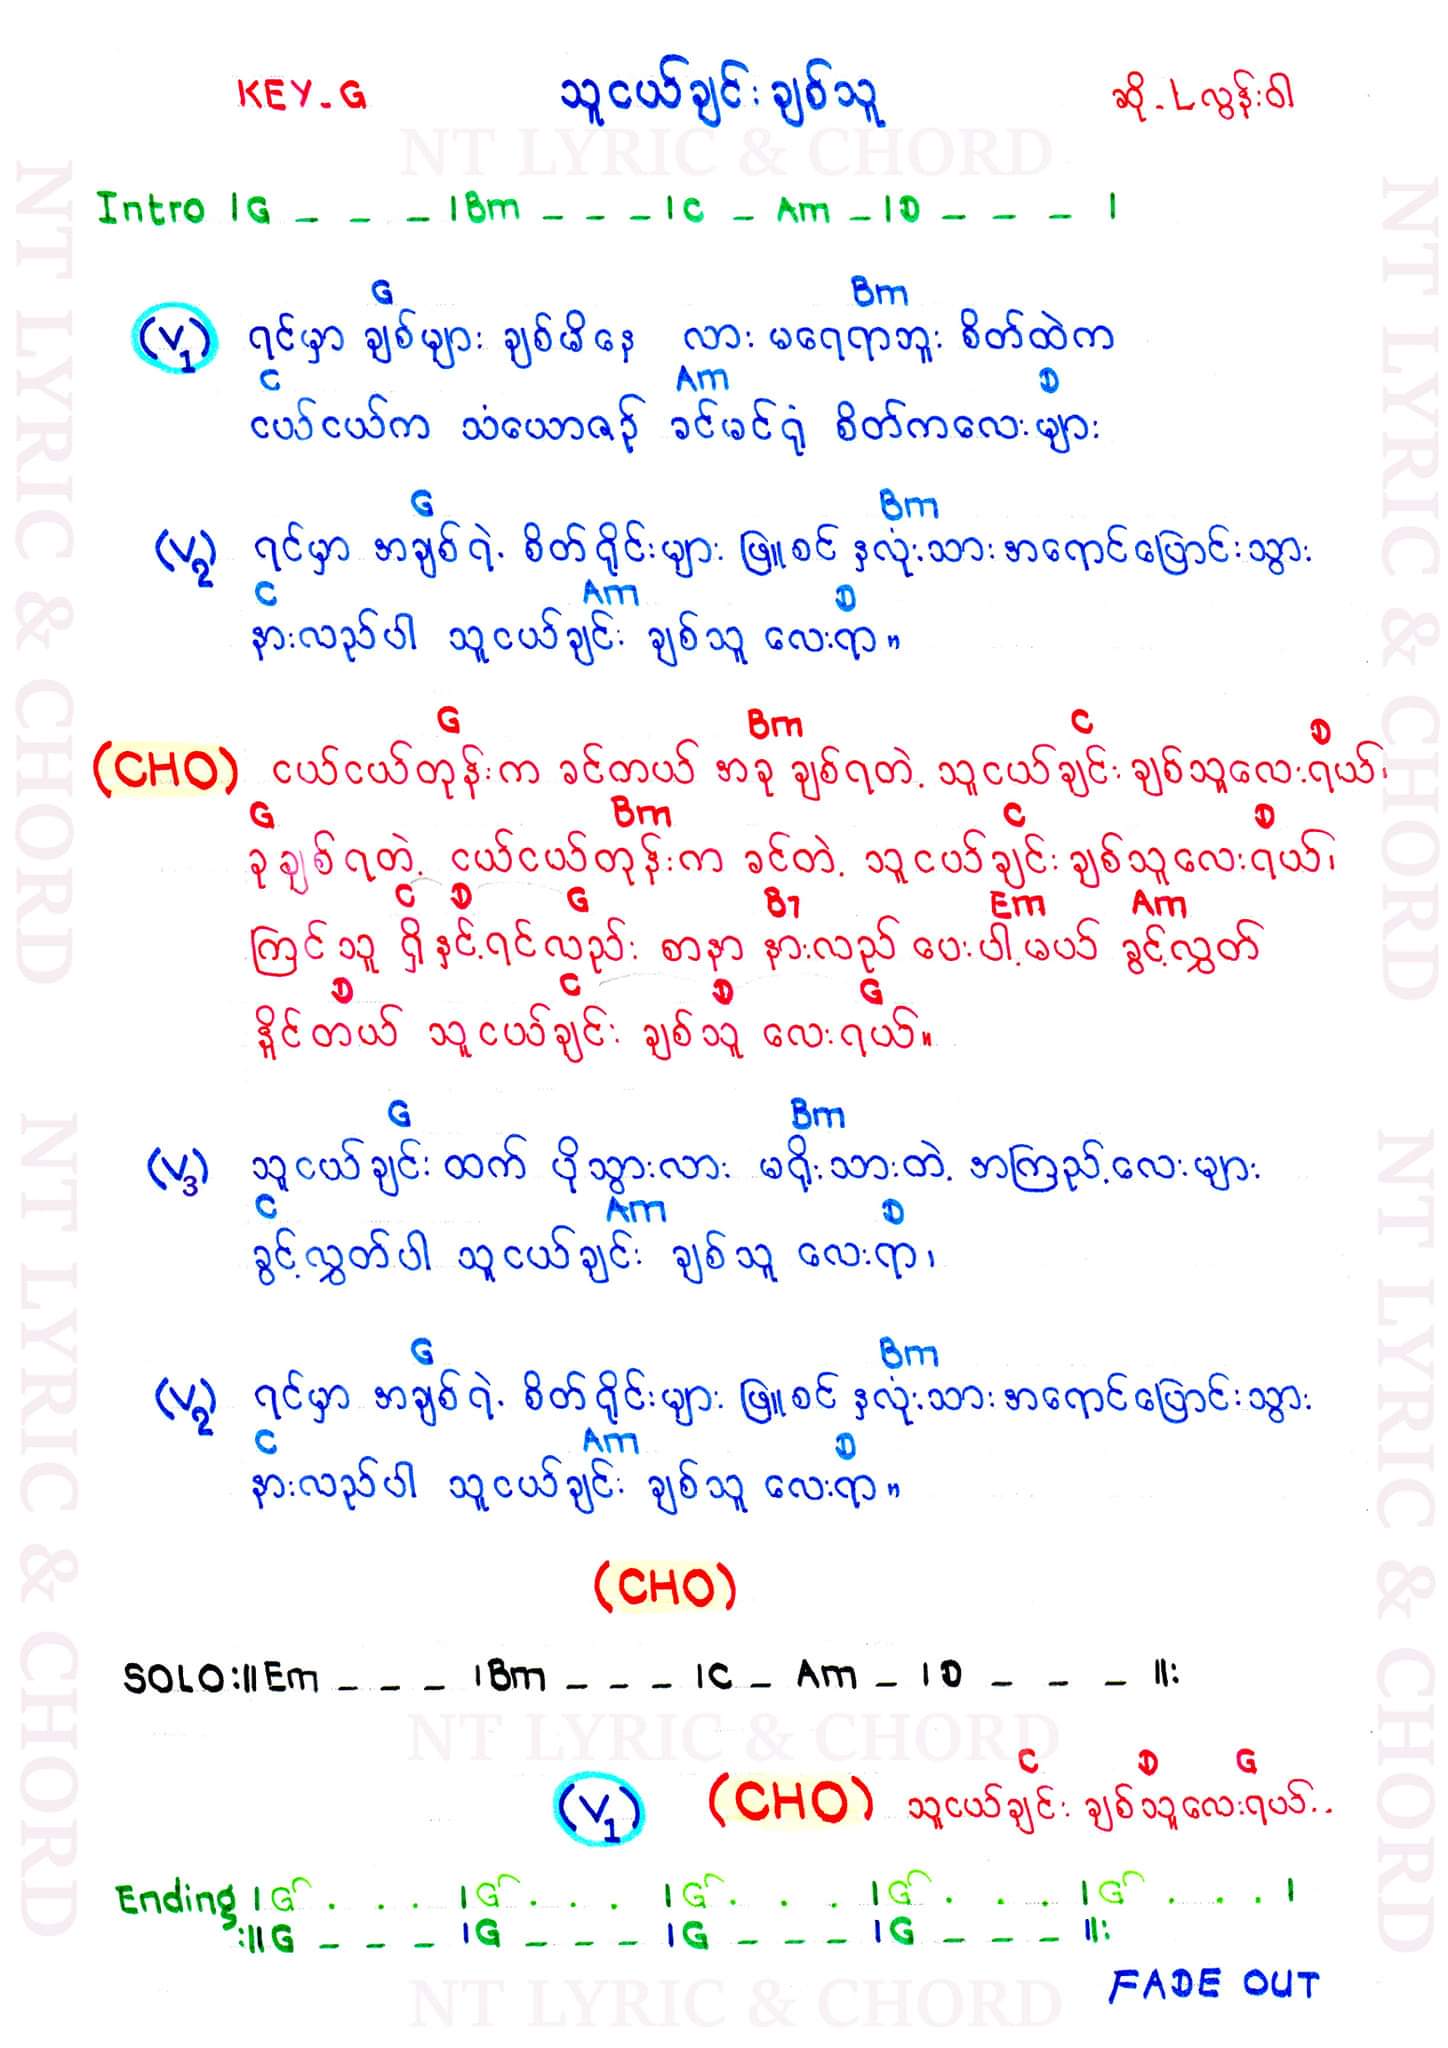 KEY-G သူငယ်ချင်းချစ်သူ ဆို-Lလွန်းဝါ
NT LYRIC & CHORD
Intro |G _ _ _ |Bm _ _ _ |C _ Am _ |D _ _ _ |
G Bm
(V1) ရင်မှာ ချစ်များ ချစ်မိနေ လား မရေရာဘူး စိတ်ထဲက
C Am D
ငယ်ငယ်က သံယောဇဉ် ခင်မင်ရုံ စိတ်ကလေးများ
G Bm
(V2) ရင်မှာ အချစ်ရဲ့ စိတ်ရိုင်းများ ဖြူစင် နှလုံးသားအရောင်ပြောင်းသွား
C Am D
နားလည်ပါ သူငယ်ချင်း ချစ်သူ လေးရာ။
G Bm C D
(CHO) ငယ်ငယ်တုန်းက ခင်တယ် အခု ချစ်ရတဲ့ သူငယ်ချင်း ချစ်သူလေးရယ်၊
G Bm C D
ခုချစ်ရတဲ့ ငယ်ငယ်တုန်းက ခင်တဲ့ သူငယ်ချင်း ချစ်သူလေးရယ်၊
C D G B7 Em Am
ကြင်သူ ရှိနှင့်ရင်လည်း စာနာ နားလည် ပေးပါ့မယ် ခွင့်လွှတ်
D C D G
နိုင်တယ် သူငယ်ချင်း ချစ်သူ လေးရယ်။
G Bm
(V3) သူငယ်ချင်းထက် ပိုသွားလား မရိုးသားတဲ့ အကြည့်လေးများ
C Am D
ခွင့်လွှတ်ပါ သူငယ်ချင်း ချစ်သူ လေးရာ၊
G Bm
(V2) ရင်မှာ အချစ်ရဲ့ စိတ်ရိုင်းများ ဖြူစင် နှလုံးသားအရောင်ပြောင်းသွား
C Am D
နားလည်ပါ သူငယ်ချင်း ချစ်သူ လေးရာ။
(CHO)
SOLO:||Em _ _ _ |Bm _ _ _ |C _ Am _ |D _ _ _ ||:
NT LYRIC & CHORD
C D G
(V1) (CHO) သူငယ်ချင်း ချစ်သူလေးရယ်..
Ending |G . . . |G . . . |G . . . |G . . . |G . . . |
:||G _ _ _ |G _ _ _ |G _ _ _ |G _ _ _ ||:
FADE OUT
NT LYRIC & CHORD
NT LYRIC & CHORD
NT LYRIC & CHORD
NT LYRIC & CHORD
NT LYRIC & CHORD